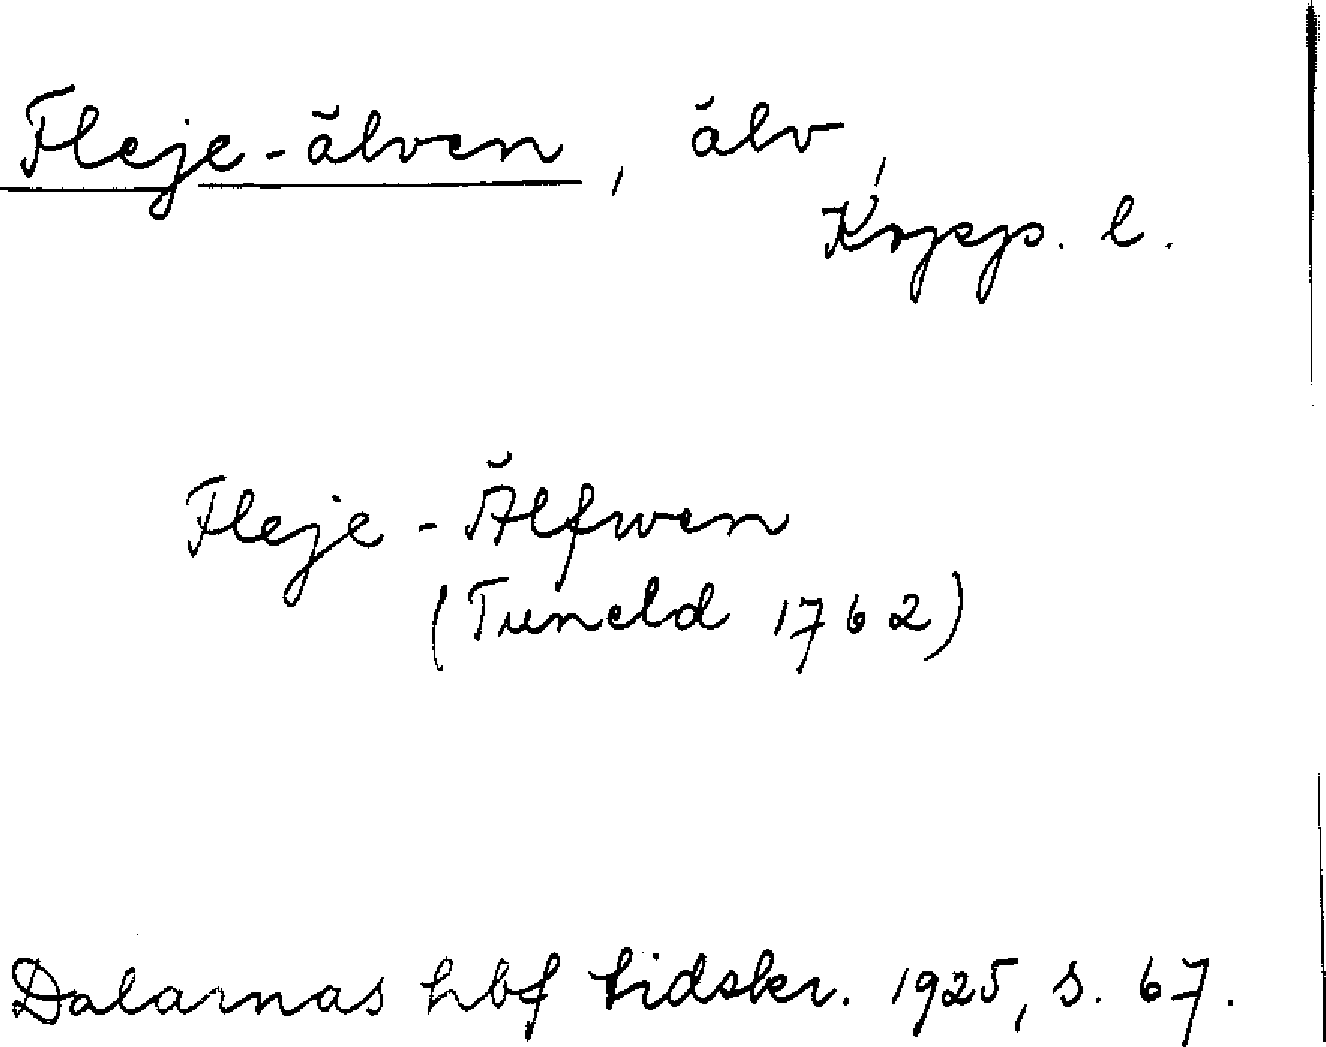 Fleje-älven, älv,
Kopp. l.
Fleje-Älfwen
(Tuneld 1762)
Dalarnas hbf tidskr. 1925, s. 67.